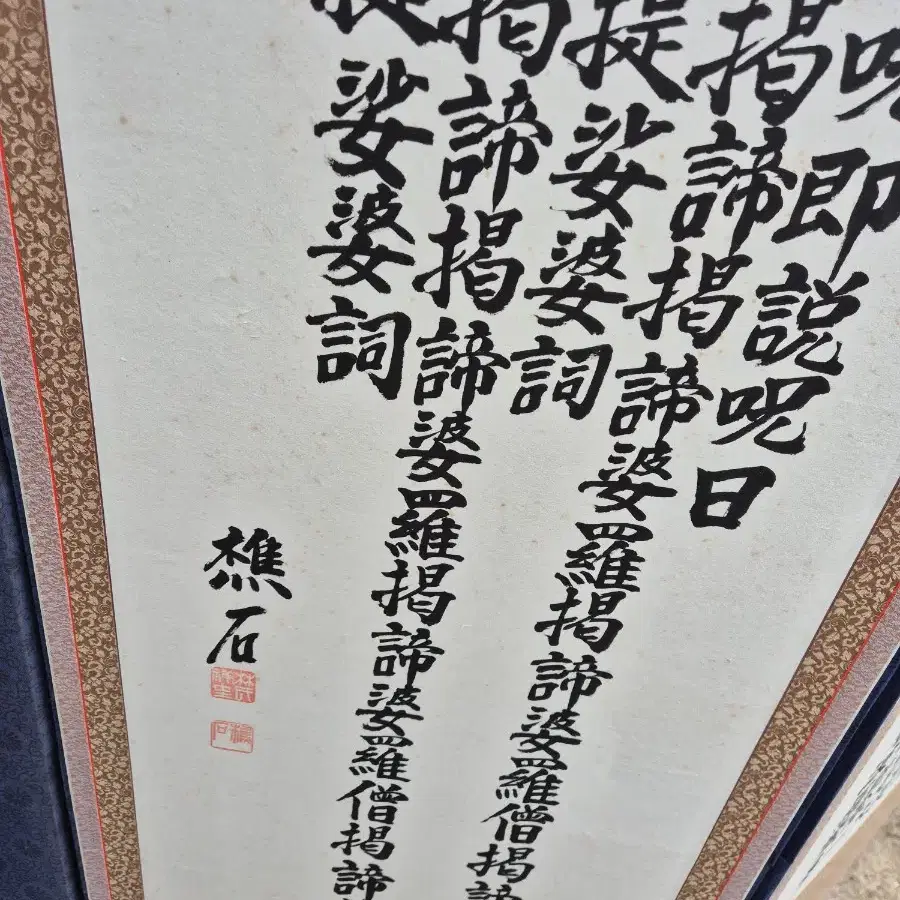 呪即説呪曰
揭諦揭諦婆羅揭諦婆羅僧揭諦
提娑婆詞
揭諦揭諦婆羅揭諦婆羅僧揭諦
提娑婆詞
樵石